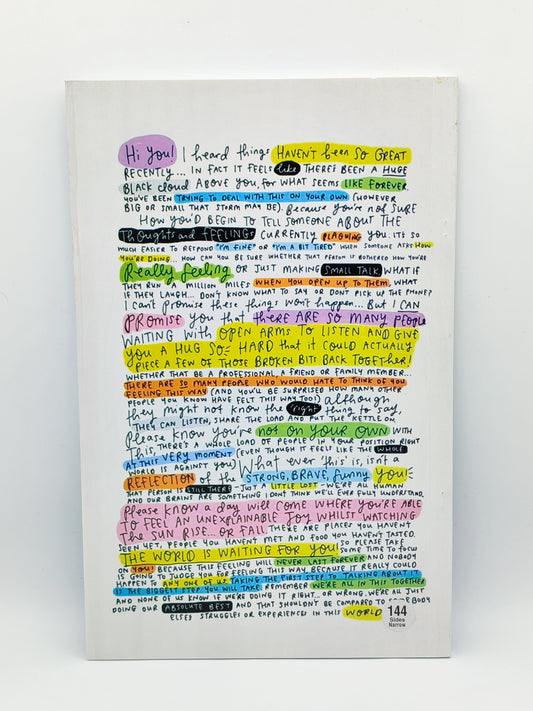 Hi you! I heard things HAVEN'T been SO GREAT
RECENTLY... IN FACT IT FEELS like THERE'S BEEN A HUGE
BLACK cloud ABOVE YOU, FOR WHAT SEEMS LIKE FOREVER.
YOU'VE BEEN TRYING TO DEAL WITH THIS ON YOUR OWN (HOWEVER
BIG OR SMALL THAT STORM MAY BE). Because you're NOT SURE
HOW YOU'D BEGIN TO TELL SOMEONE ABOUT THE
Thoughts and fEELINGS CURRENTLY PLAGUING YOU. IT'S SO
MUCH EASIER TO RESPOND "I'M FINE" OR "I'M A BIT TIRED" WHEN SOMEONE ASKS HOW
YOU'RE DOING... HOW CAN YOU BE SURE WHETHER THAT PERSON IS BOTHERED HOW YOU'RE
Really feeling OR JUST MAKING SMALL TALK WHAT IF
THEY RUN A MILLION MILES WHEN YOU OPEN UP TO THEM, WHAT
IF THEY LAUGH... DON'T KNOW WHAT TO SAY OR DON'T PICK UP THE PHONE?
I can't PROMISE these things won't happen... But I CAN
PROMISE you that thERE ARE SO MANY PEOPLE
WAITING WITH OPEN ARMS TO LISTEN AND GIVE
YOU A HUG SO HARD that it COULD ACTUALLY
PIECE A FEW OF THOSE BROKEN BITS BACK TOGETHER!
WHETHER THAT BE A PROFESSIONAL, A FRIEND OR FAMILY MEMBER...
THERE ARE SO MANY PEOPLE WHO WOULD HATE TO THINK OF YOU
FEELING THIS WAY (AND YOU'LL BE SURPRISED HOW MANY OTHER
PEOPLE YOU KNOW HAVE FELT THIS WAY TOO!) although
they might not know the right thing to say,
THEY CAN LISTEN, SHARE THE LOAD AND PUT THE KETTLE ON.
Please know you're not on YOUR OWN WITH
THIS, THERE'S A WHOLE LOAD OF PEOPLE IN YOUR POSITION RIGHT
AT THIS VERY MOMENT (EVEN THOUGH IT FEELS LIKE THE WHOLE
WORLD IS AGAINST YOU) What ever this is, isn't a
REFLECTION of the STRONG, BRAVE, funny YOU!
THAT PERSON IS STILL THERE - JUST A LITTLE LOST - WE'RE ALL HUMAN
AND OUR BRAINS ARE SOMETHING I DON'T THINK WE'LL EVER FULLY UNDERSTAND.
Please know a day will COME WHERE YOU'RE ABLE
TO FEEL AN UNEXPLAINABLE JOY WHILST WATCHING
THE SUN RISE OR FALL. THERE ARE PLACES YOU HAVEN'T
SEEN YET, PEOPLE YOU HAVEN'T MET AND FOOD YOU HAVEN'T TASTED.
THE WORLD IS WAITING FOR YOU! SO PLEASE TAKE SOME TIME TO FOCUS
ON YOU! BECAUSE THIS FEELING WILL NEVER LAST FOREVER AND NOBODY
IS GOING TO JUDGE YOU FOR FEELING THIS WAY, BECAUSE IT REALLY COULD
HAPPEN TO ANY ONE OF US TAKING THE FIRST STEP TO TALKING ABOUT IT
IS THE BIGGEST STEP YOU WILL TAKE REMEMBER WE'RE ALL IN THIS TOGETHER
AND NONE OF US KNOW IF WE'RE DOING IT RIGHT.. OR WRONG, WE'RE ALL JUST
DOING OUR ABSOLUTE BEST AND THAT SHOULDN'T BE COMPARED TO
ELSES STRUGGLES OR EXPERIENCES IN THIS WORLD
144
Sides
Narrow